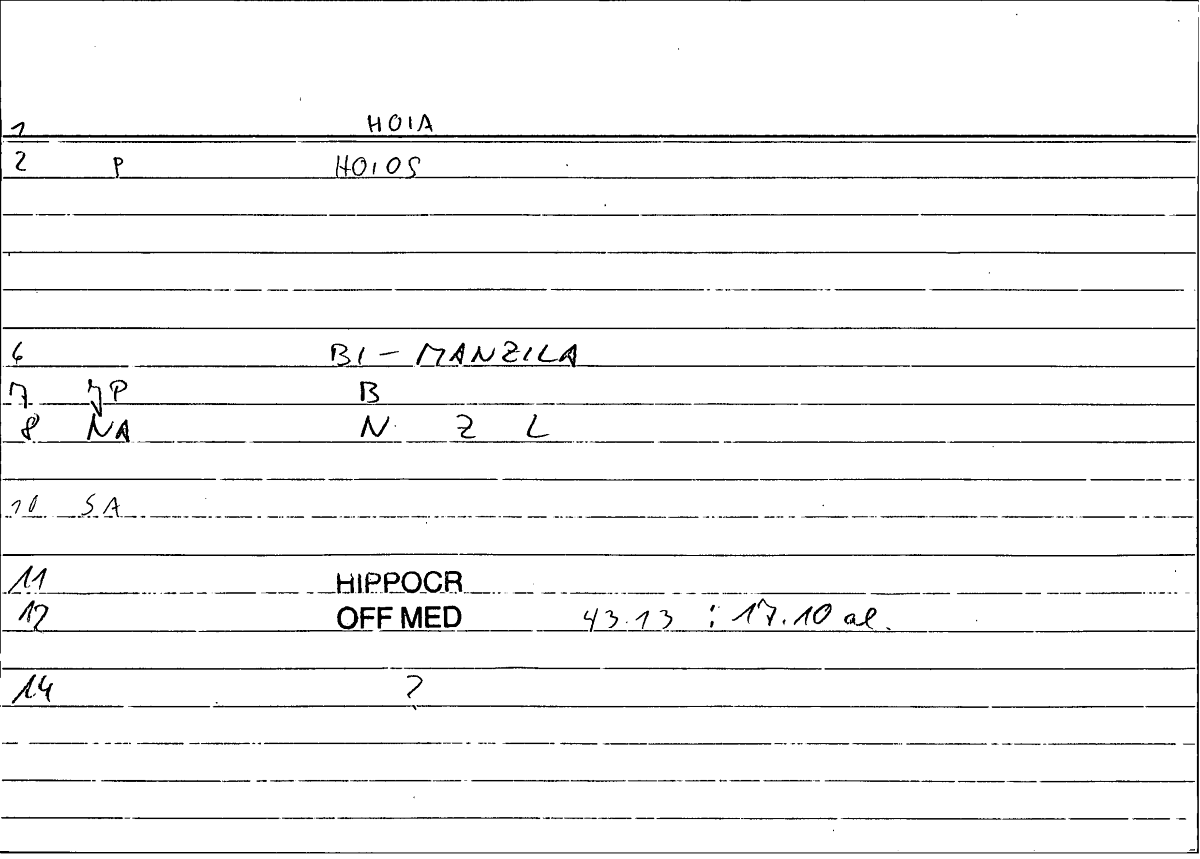 1 HOIA
2 P HOIOS
6 BI - MANZILA
7 JP B
8 NA N Z L
10 SA
11 HIPPOCR
12 OFF MED 43.13 : 17.10 al.
14 ?